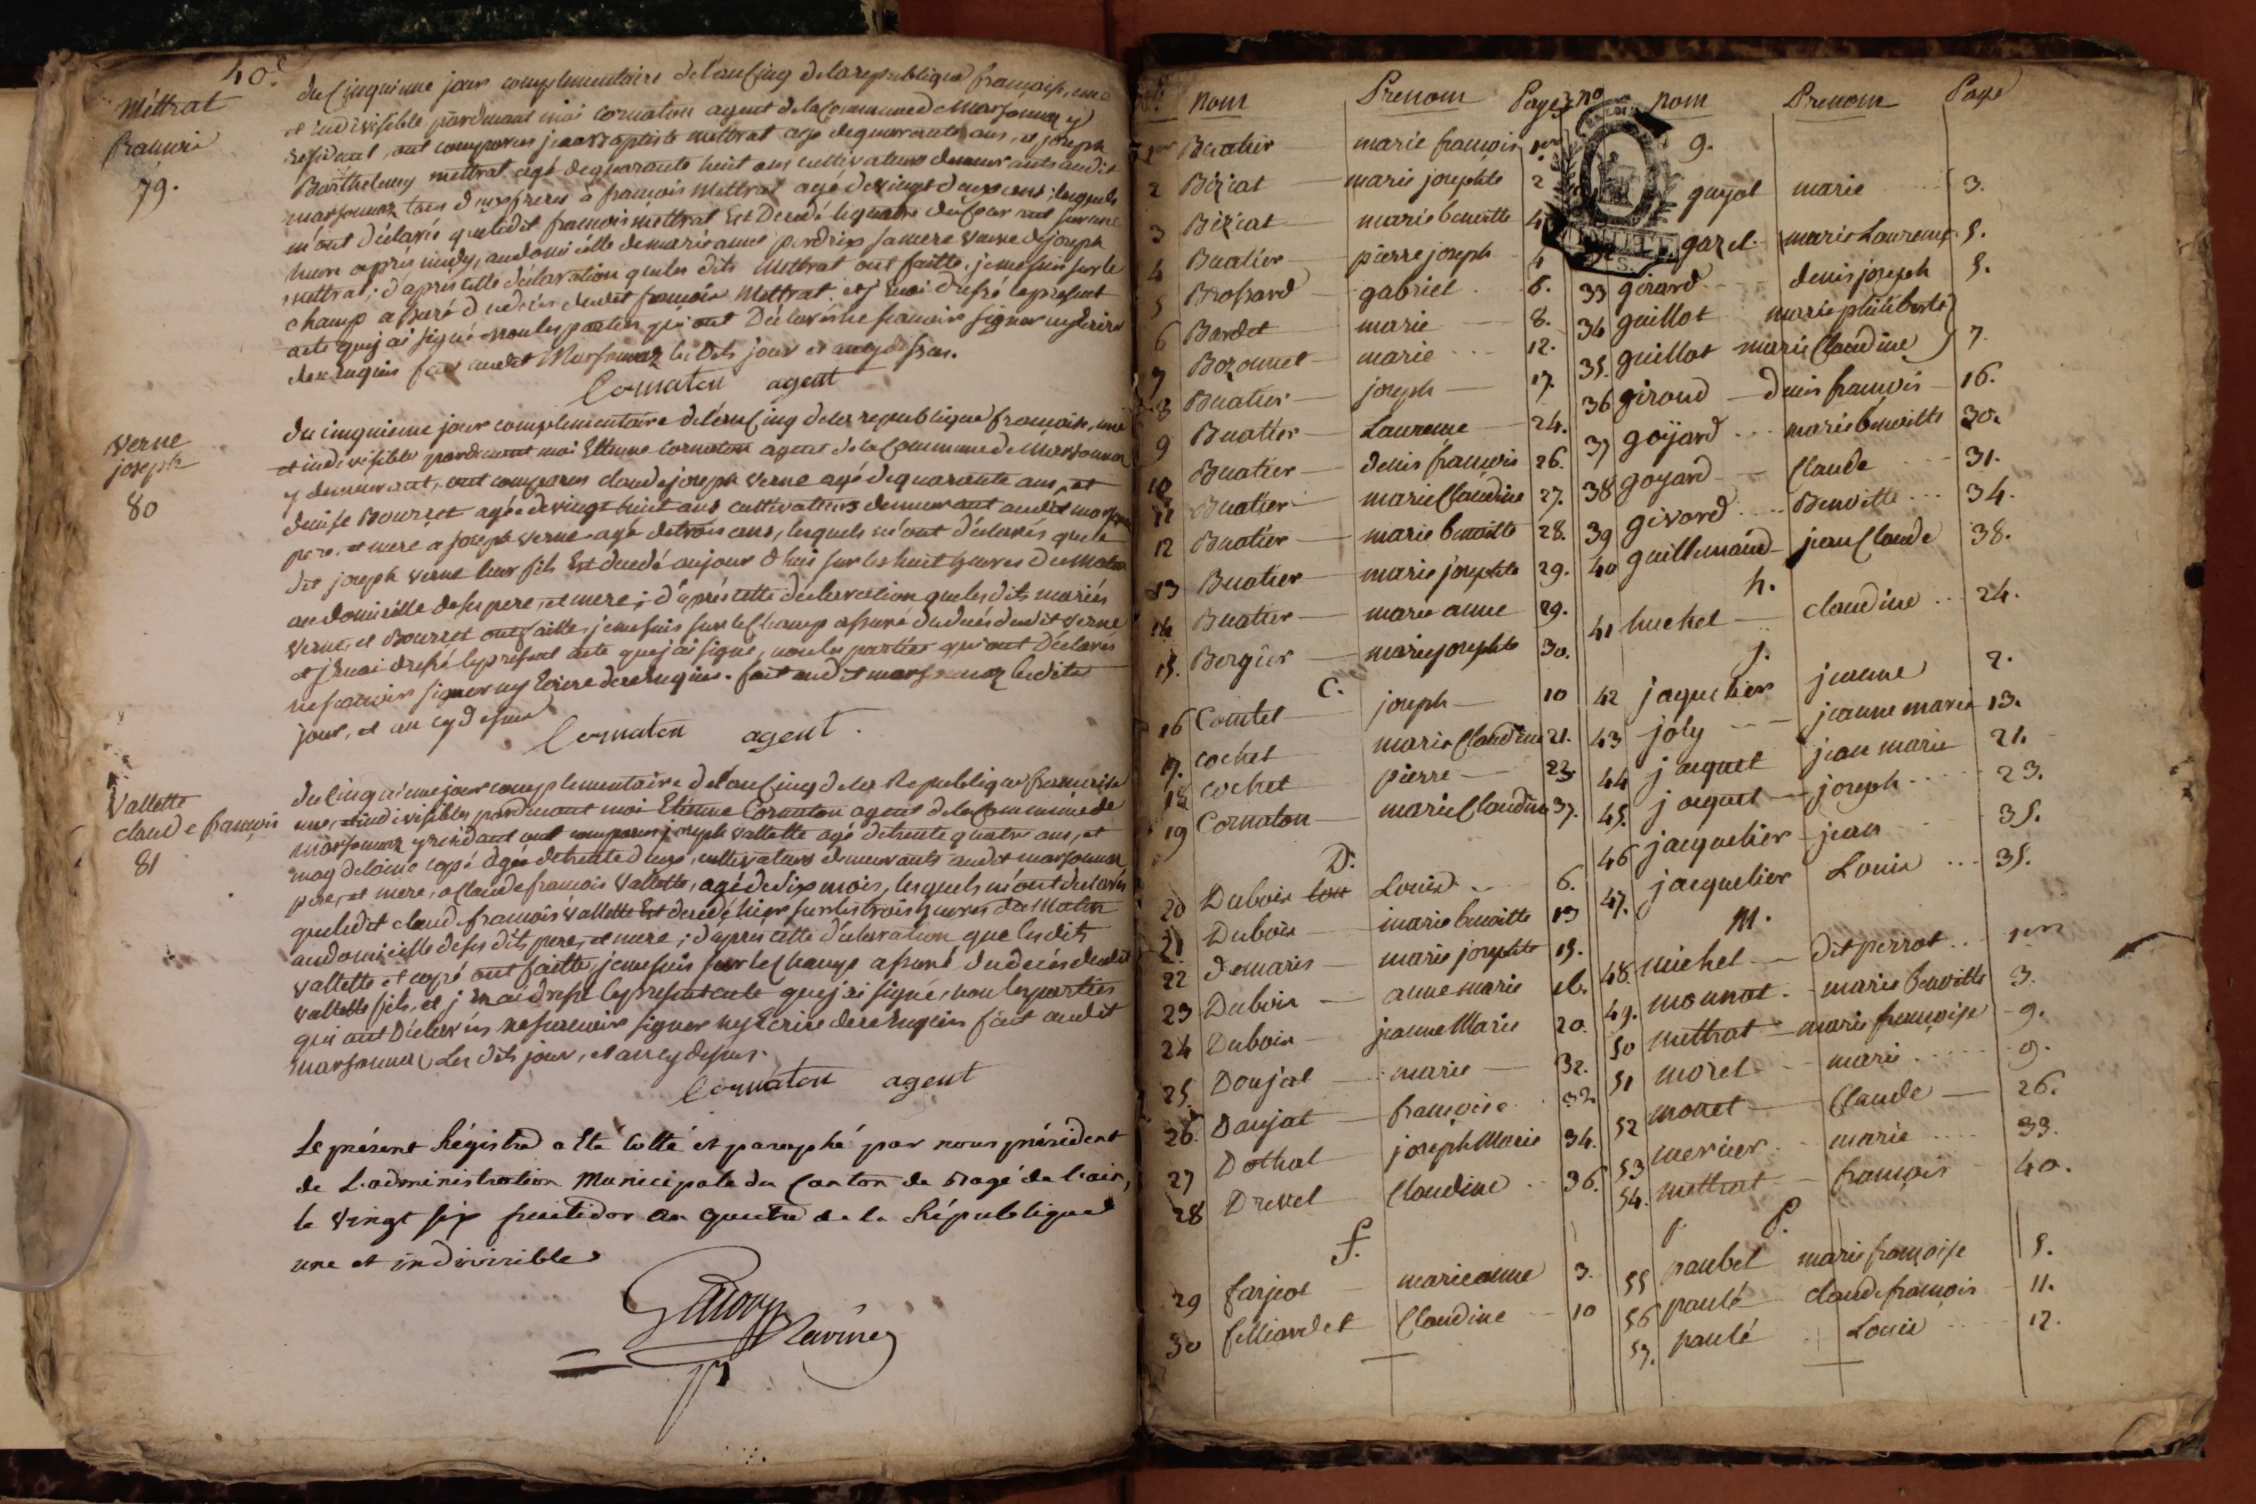 40.e
Mettrat
francois
79.
du Cinquieme jour complementaire de l'an Cinq de la republique francaise, une
et indivisible pardevant moi cornaton agent de la Commune de Marsonnaz y
residant, ont comparus jean Baptiste mettrat agé de quarante ans, et joseph
Barthelemy mettrat agé de quarante huit ans cultivateurs demeurants audit
marsonnaz tous deux freres à francois Mettrat agé de vingt deux ans; lesquels
m'ont déclaré que ledit francois mettrat Est Decedé le quatre du Courant sur une
heure apres midy, au domicille de marie anne perdrix sa mere veuve de joseph
mettrat; d'après cette déclaration que les dits Mettrat ont faitte, je me suis sur le
champ assuré du deces dudit francois Mettrat et j'en ai dressé le present
acte que j'ai signé non les parties qui ont Déclaré ne scavoir signer ny Ecrire
de ce requis fait audit Marsonnaz les Dits jour et an cy dessus.
Cornaton agent
Verne
joseph
80
du cinquieme jour complementaire de l'an Cinq de la republique francaise, une
et indivisible pardevant moi Etienne Cornaton agent de la Commune de Marsonnaz
y demeurant, ont comparus claude joseph Verne agé de quarante ans, et
denise Bourret agée de vingt huit ans cultivateurs demeurant audit marsonnaz
pere, et mere à joseph verne agé de trois ans, lesquels m'ont déclarés que le
dit joseph verne leur fils Est decedé aujour d'hui sur les huit heures du Matin
au domicille de ses pere, et mere; d'après cette déclaration que les dits mariés
Verne, et Bourret ont faitte, je me suis sur le Champ assuré du decès dudit Verne
et j'en ai dressé le present acte que j'ai signé, non les parties qui ont Déclarés
ne scavoir signer ny Ecrire de ce requis. fait audit marsonnaz les dits
jour, et an cy dessus
Cornaton agent.
Vallette
claude francois
81
du Cinquieme jour complementaire de l'an Cinq de la Republique francaise
une, et indivisible, pardevant moi Etienne Cornaton agent de la Commune de
marsonnaz y residant ont comparus joseph Vallette agé de trente quatre ans, et
magdelaine copé agée de trente deux, cultivateurs demeurants audit marsonnaz
pere, et mere, a Claude francois Vallette, agé de dix mois, lesquels m'ont declarés
que ledit claude francois Vallette Est decedé hier sur les trois heures du Matin
au domicille de ses dits pere, et mere; d'apres cette déclaration que les dits
Vallette et copé ont faitte je me suis sur le Champ assuré du decès dudit
Vallette fils, et j'en ai dressé le present acte que j'ai signé, non les parties
qui ont Déclarés ne scavoir signer ny Ecrire de ce requis fait audit
marsonnaz Les dits jour, et an cy dessus.
Cornaton agent
Le présent Régistre a Eté Cotté et paraphé par nous président
de L'administration Municipale du Canton de Bagé de l'ain,
le Vingt six fructidor an quatre de la République
une et indivisible
nom Prenom Page
1er Buatier marie francois 1er
2 Biziat marie josephte 2
3 Biziat marie benoitte 4
4 Buatier pierre joseph 4
5 Brossard gabriel 6.
6 Bardet marie 8.
7 Bozonnet marie 12.
8 Buatier joseph 17.
9 Buatier Laurence 24.
10 Buatier denis francois 26.
11 Buatier marie Claudine 27.
12 Buatier marie benoitte 28.
13 Buatier marie josephte 29.
14 Buatier marie anne 29.
15. Bergier marie josephte 30.
C.
16 Comtet joseph 10
17. cochet marie Claudine 21.
18 cochet pierre 22.
19 Cornaton marie Claudine 37.
D.
20 Dubois Louis 6.
21. Dubois marie benoitte 13
22 demaris marie josephte 15.
23 Dubois anne marie
24 Dubois jeanne Marie 20.
25. Doujat marie 32.
26. Daujat francoise 32
27 Dothal joseph Marie 34.
28 Drevet Claudine 36.
f.
29 farjeot marie anne 3.
30 filliardet Claudine 10
no nom Prenom Page
g.
guyot marie 3.
gazel marie Laurence 5.
33 girard denis joseph 5.
34 guillot marie philiberte
35. guillot marie Claudine 7.
36 giroud denis francois 16.
37 goyard marie benoitte 30.
38 goyard Claude 31.
39 givord Benoitte 34.
40 guillemaud jean Claude 38.
h.
41 huchet claudine 24.
j.
42 jaquetier jeanne 2.
43 joly jeanne marie 13.
44 jacquet jean marie 21.
45. jacquet joseph 23.
46 jacquetier jean 35.
47. jacquetier Louis 35.
M.
48. michel dit perrot 1er
49. monnat marie benoitte 3.
50 mettrat marie francoise 9.
51 morel marie 9.
52 monet Claude 26.
53 mercier marie 33.
54. mettrat francois 40.
P.
55 paubel marie francoise 5.
56 paulé claude francois 11.
57. paulé Louis 12.